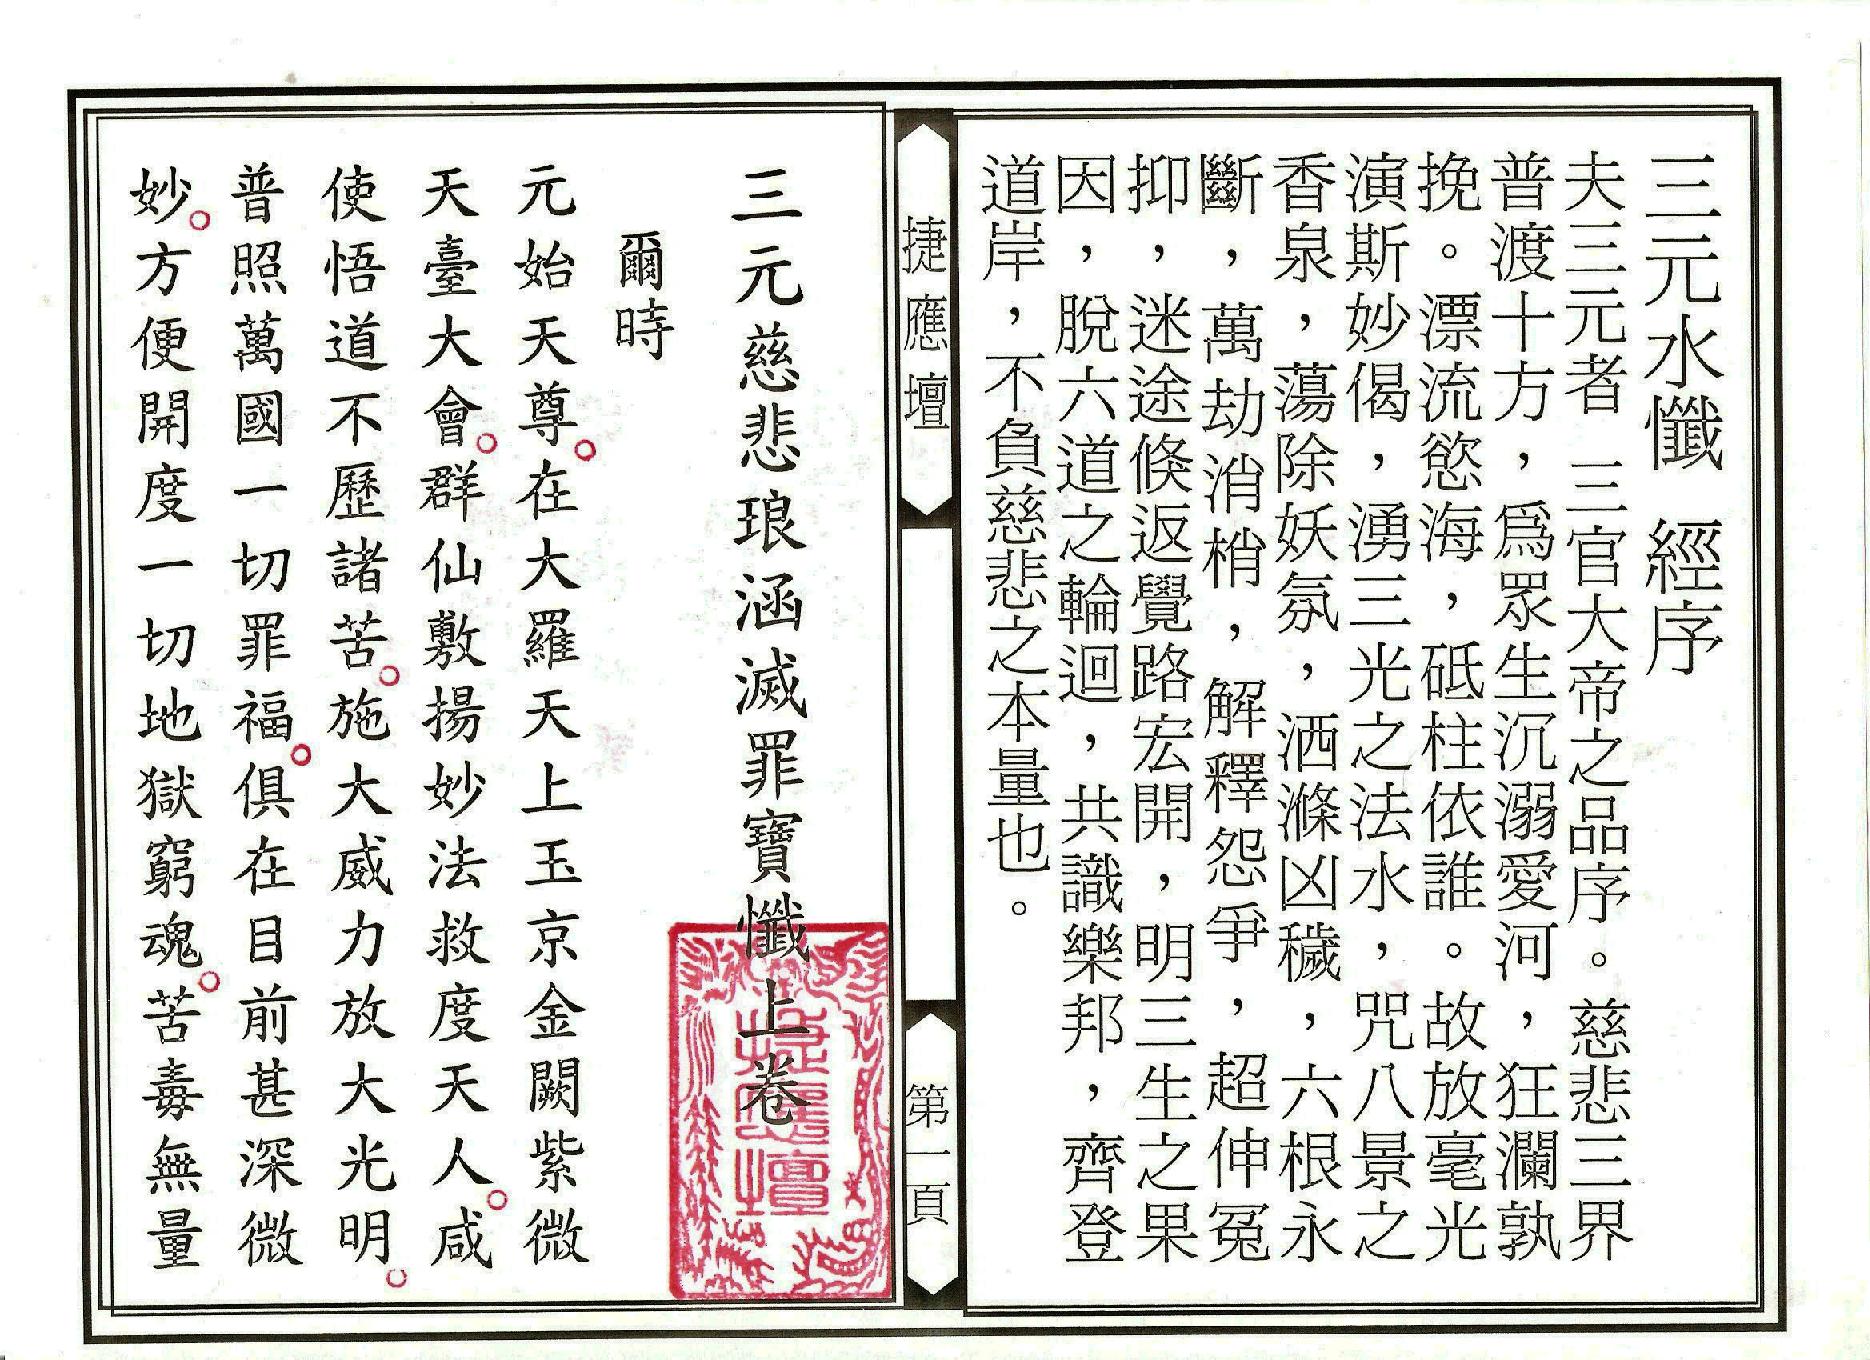 三元水懺　經序
夫三元者　三官大帝之品序。慈悲三界
普渡十方，爲眾生沉溺愛河，狂瀾孰
挽。漂流慾海，砥柱依誰。故放毫光
演斯妙偈，湧三光之法水，咒八景之
香泉，蕩除妖氛，洒滌凶穢，六根永
斷，萬劫消梢，解釋怨爭，超伸冤
抑，迷途倏返覺路宏開，明三生之果
因，脫六道之輪迴，共識樂邦，齊登
道岸，不負慈悲之本量也。
捷應壇
第一頁
三元慈悲琅涵滅罪寶懺上卷
爾時
元始天尊。在大羅天上玉京金闕紫微
天臺大會。群仙敷揚妙法救度天人。咸
使悟道不歷諸苦。施大威力放大光明。
普照萬國一切罪福。俱在目前甚深微
妙。方便開度一切地獄窮魂。苦毒無量
捷應壇